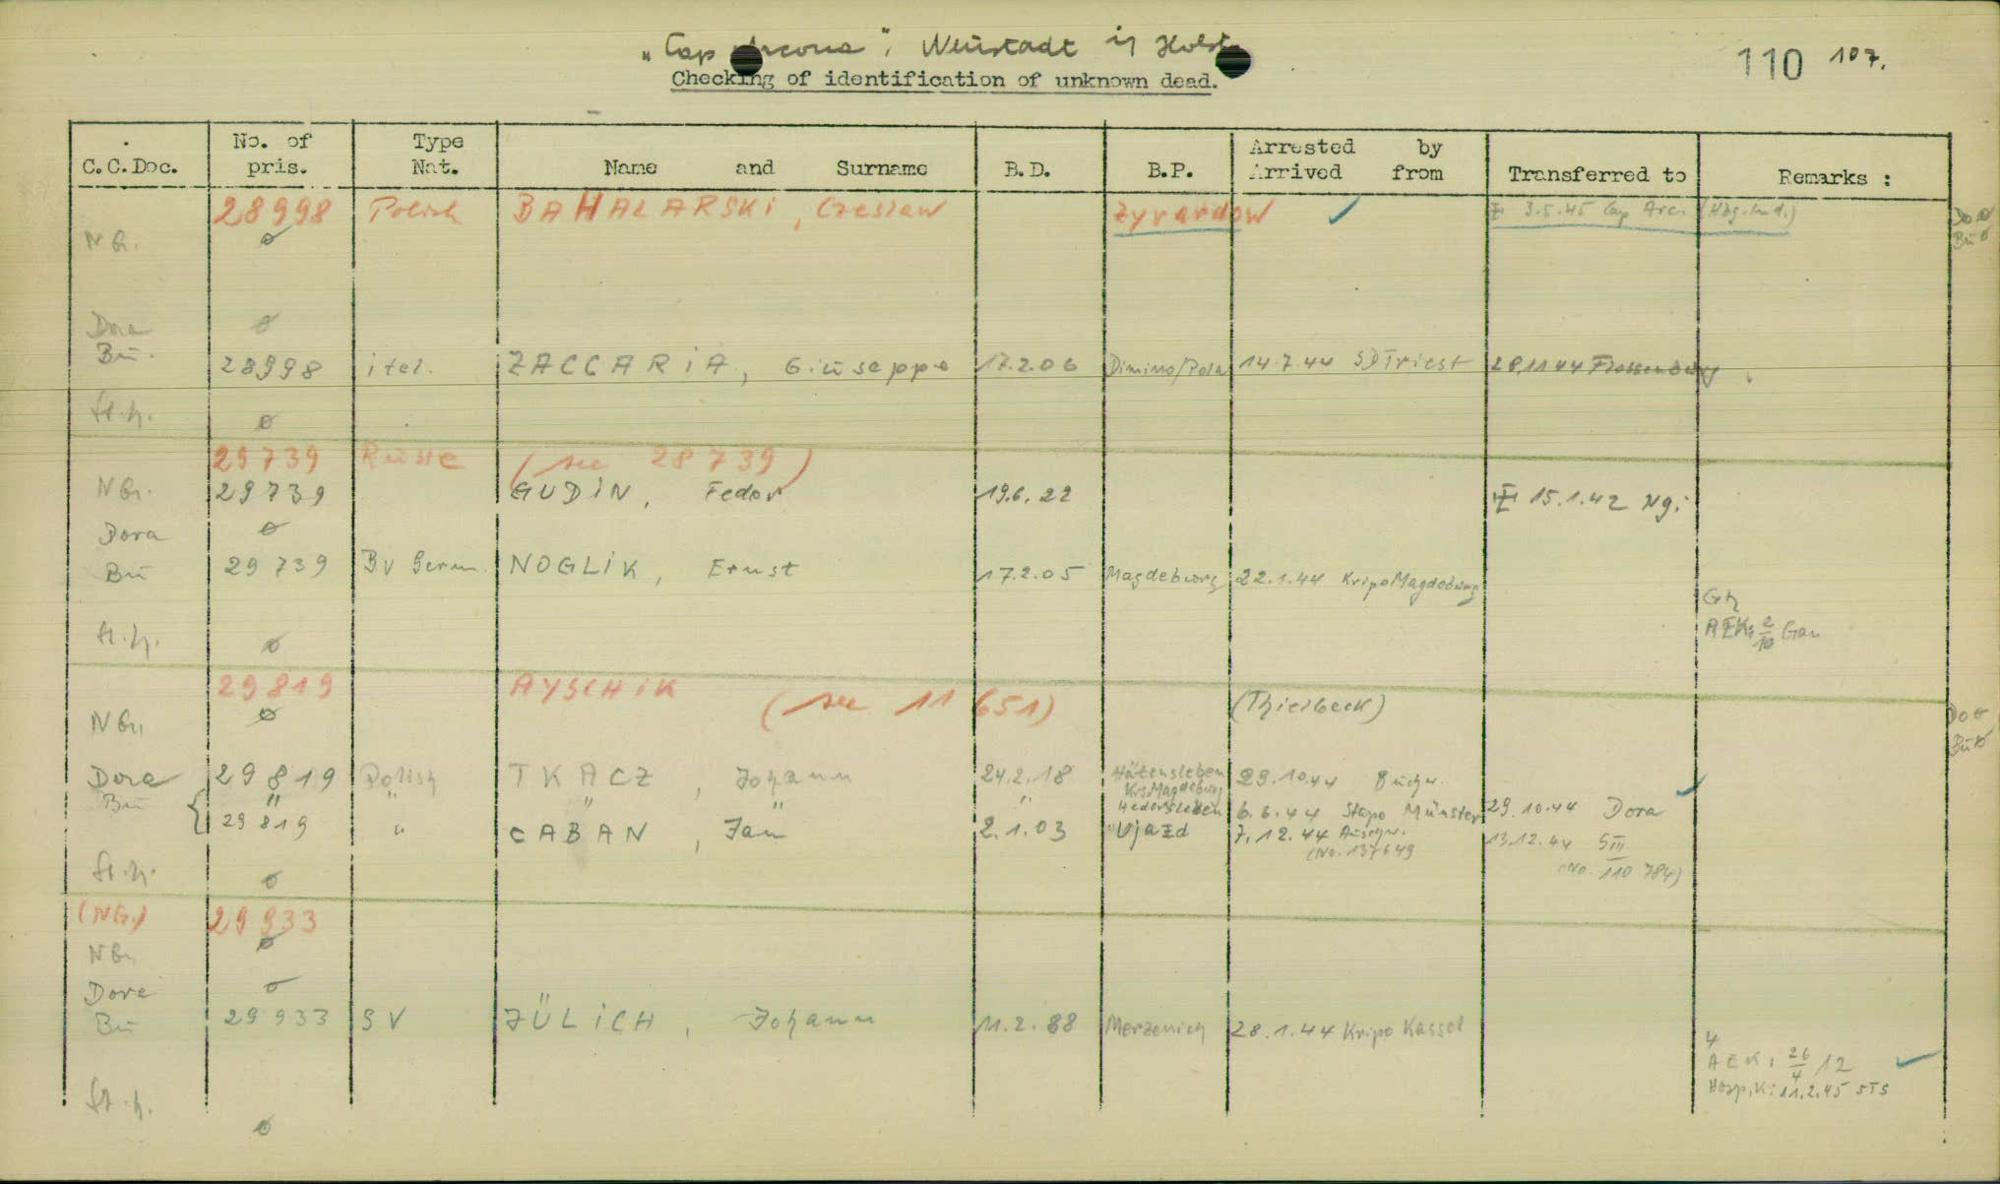 "Cap Arcona", Neustadt i/ Holst.
Checking of identification of unknown dead.
110 107.
C.C.Doc. No. of pris. Type Nat. Name and Surname B.D. B.P. Arrested by Arrived from Transferred to Remarks :
28998 Polish BAHALARSKi, Czeslaw Zyrardow ✓ 3.5.45 Cap Arc.
NG. ø
Dora ø
Bu. 28998 ital. ZACCARiA, Giuseppe 17.2.06 Dimino/Pola 14.7.44 SD Triest 28.11.44 Flossenburg
St.h. ø
29739 Russe (see 28739)
NG. 29739 GUDiN, Fedor 19.6.22 15.1.42 Ng.
Dora ø
Bu 29739 BV Germ. NOGLiK, Ernst 17.2.05 Magdeburg 22.1.44 Kripo Magdeburg
AEK: 2/10
St.h. ø
29819 AYSCHiK (see 11651) (Thielbeck)
NG. ø
Dora 29819 Polish TKACZ, Johann 24.2.18 Hätensleben Krs. Magdeburg 29.10.44 Buchw.
Bu { " " " " " Hedersleben 6.6.44 Stapo Münster 29.10.44 Dora
29819 " CABAN, Jan 2.1.03 Ujazd 7.12.44 Auschw. (No. 137649 13.12.44 SIII (No. 110784)
St.h. ø
(NG.) 29933
NG. ø
Dora ø
Bu 29933 SV JÜLiCH, Johann 11.2.88 Merzenich 28.1.44 Kripo Kassel
4
AEK: 26/4 12 ✓
Hosp.K: 11.2.45 STS
St.h. ø